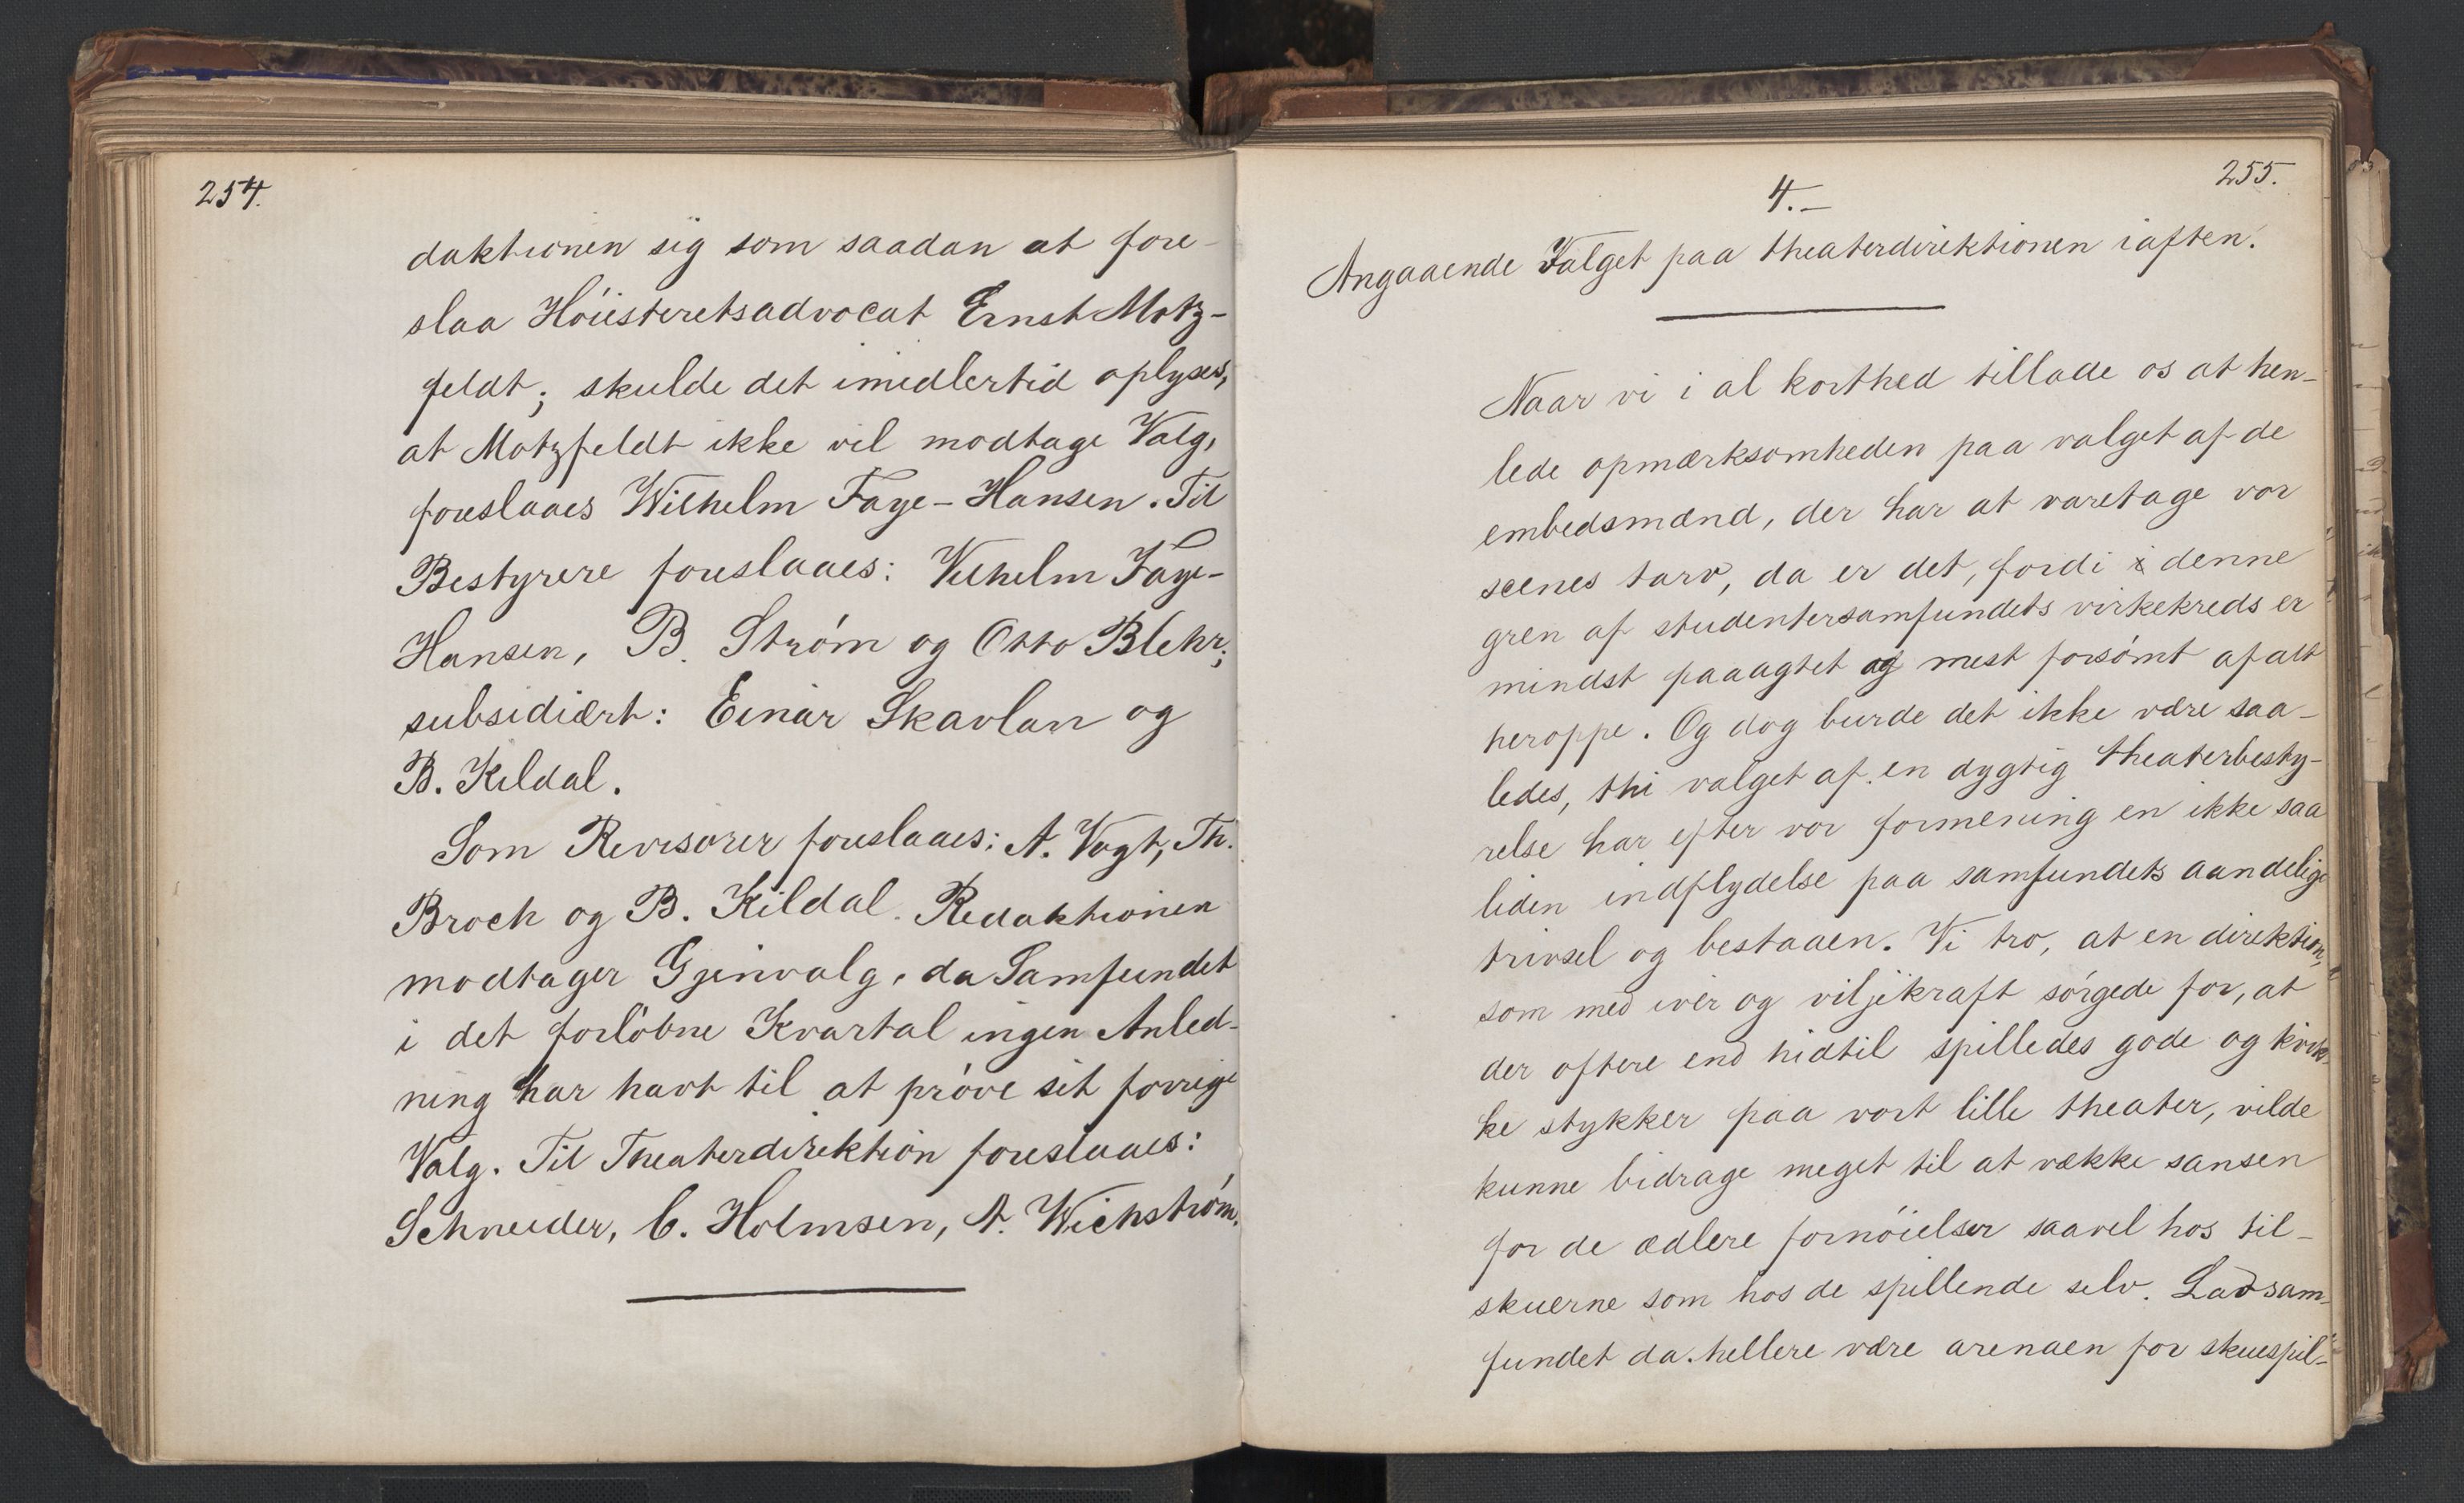 254.
daktionen sig som saadan at fore-
slaa Höiesteretsadvocat Ernst Motz-
feldt; skulde det imidlertid oplyses,
at Motzfeldt ikke vil modtage Valg,
foreslaaes Wilhelm Faye-Hansen. Til
Bestyrere foreslaaes: Vilhelm Faye-
Hansen, B. Ström og Otto Blehr;
subsidiært: Einar Skavlan og
B. Kildal.
Som Revisorer foreslaaes: A. Vogt, Th.
Broch og B. Kildal. Redaktionen
modtager Gjenvalg, da Samfundet
i det forlöbne Kvartal ingen Anled-
ning har havt til at pröve sit forrige
Valg. Til Theaterdirektion foreslaaes:
Schneider, C. Holmsen, A. Wichström.
255.
4.-
Angaaende Valget paa theaterdirektionen iaften.
Naar vi i al korthed tillade os at hen-
lede opmærksomheden paa valget af de
embedsmænd, der har at varetage vor
scenes tarv, da er det, fordi denne
gren af studentersamfundets virkekreds er
mindst paaagtet og mest forsömt af alt
heroppe. Og dog burde det ikke være saa-
ledes, thi valget af en dygtig theaterbesty-
relse har efter vor formening en ikke saa
liden indflydelse paa samfundets aandelige
trivsel og bestaaen. Vi tro, at en direktion,
som med iver og viljekraft sörgede for, at
der oftere end hidtil spilledes gode og kvik-
ke stykker paa vort lille theater, vilde
kunne bidrage meget til at vække sansen
for de ædlere fornöielser saavel hos til-
skuerne som hos de spillende selv. Lad sam-
fundet da hellere være arenaen for skuespil-